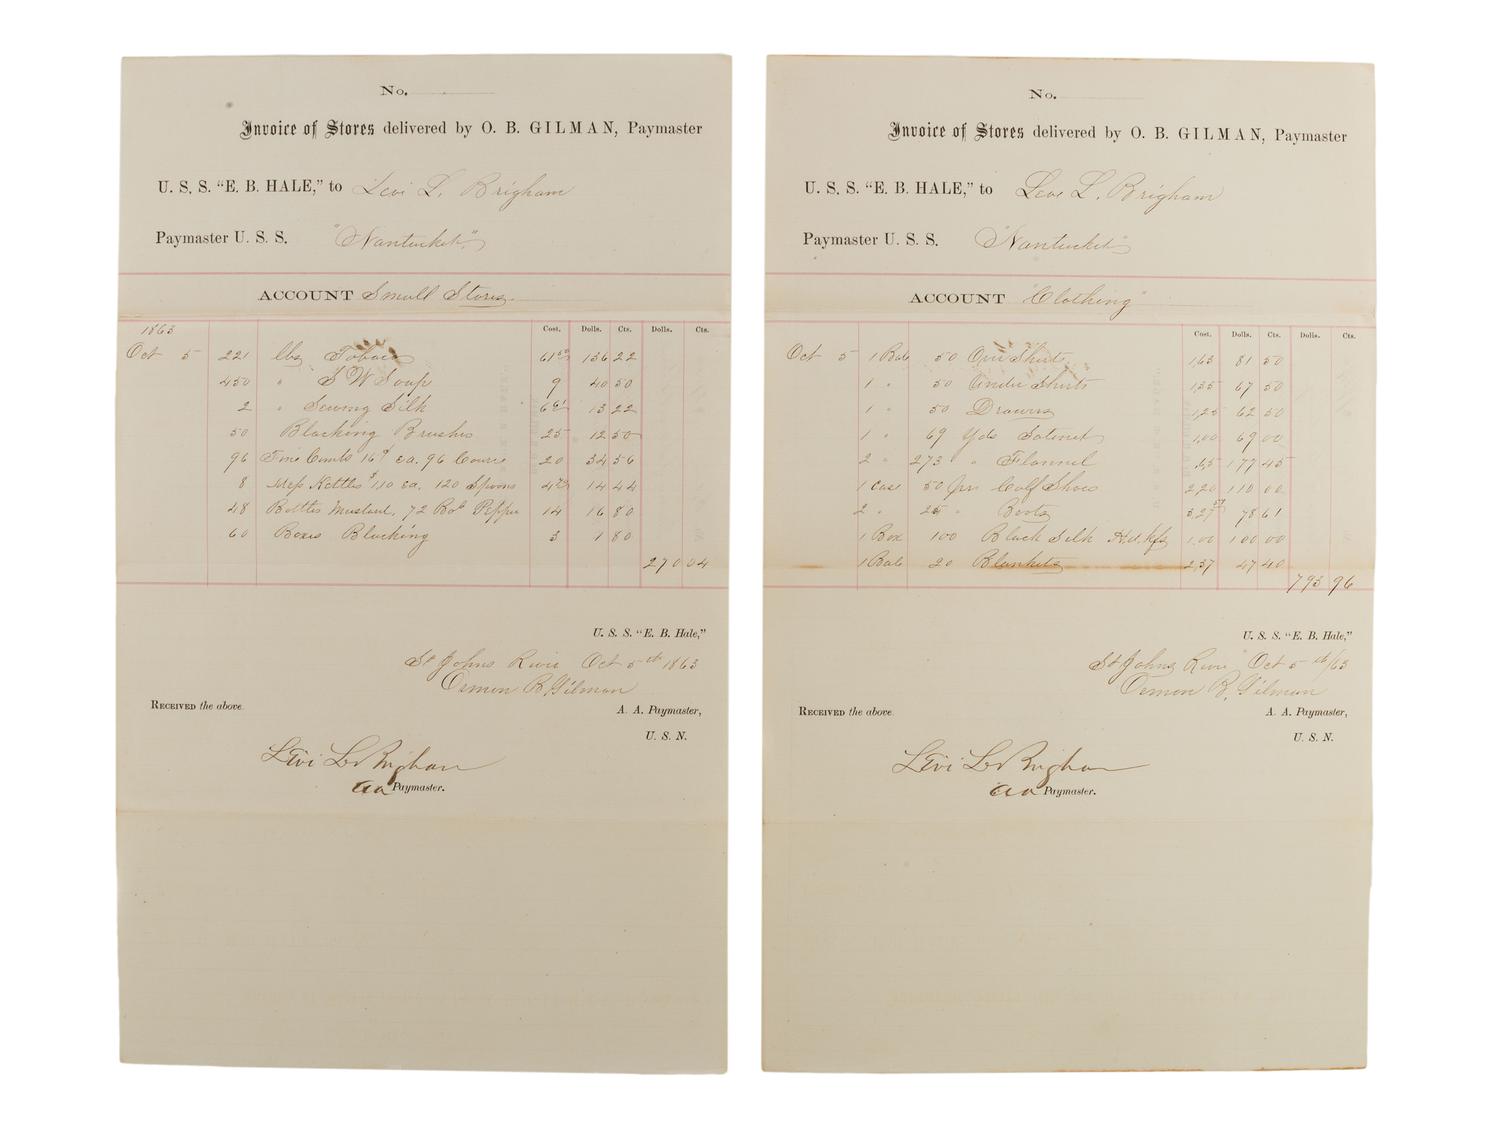 No.
Invoice of Stores delivered by O. B. GILMAN, Paymaster
U. S. S. “E. B. HALE,” to Levi L. Brigham
Paymaster U. S. S. "Nantucket"
ACCOUNT Small Stores
Cost. Dolls. Cts. Dolls. Cts.
1863
Oct 5 221 lbs Tobacco 61 50 136 22
450 " S W Soap 9 40 50
2 " Sewing Silk 661 13 22
50 Blacking Brushes 25 12 50
96 Fine Combs 16¢ ea. 96 Coarse 20 34 56
8 Mess Kettles $1.10 ea. 120 Spoons 14 44
48 Bottles Mustard, 72 Bot Pepper 14 16 80
60 Boxes Blacking 3 1 80
270 04
U. S. S. “E. B. Hale,”
St Johns River Oct 5th 1863
Ormon B. Gilman
RECEIVED the above.
A. A. Paymaster,
U. S. N.
Levi L. Brigham
aa Paymaster.
No.
Invoice of Stores delivered by O. B. GILMAN, Paymaster
U. S. S. “E. B. HALE,” to Levi L. Brigham
Paymaster U. S. S. "Nantucket"
ACCOUNT "Clothing"
Cost. Dolls. Cts. Dolls. Cts.
Oct 5 1 Bale 50 Over Shirts 1,63 81 50
1 " 50 Under Shirts 1,35 67 50
1 " 50 Drawers 1,25 62 50
1 " 69 Yds Satinet 1,00 69 00
2 " 273 " Flannel ,65 177 45
1 Case 50 prs Calf Shoes 2 20 110 00
2 " 25 " Boots 3,27 78 61
1 Box 100 Black Silk Hdkfs 1,00 100 00
1 Bale 20 Blankets 2,37 47 40
793 96
U. S. S. “E. B. Hale,”
St Johns River Oct 5th/63
Ormon B. Gilman
RECEIVED the above.
A. A. Paymaster,
U. S. N.
Levi L. Brigham
aa Paymaster.